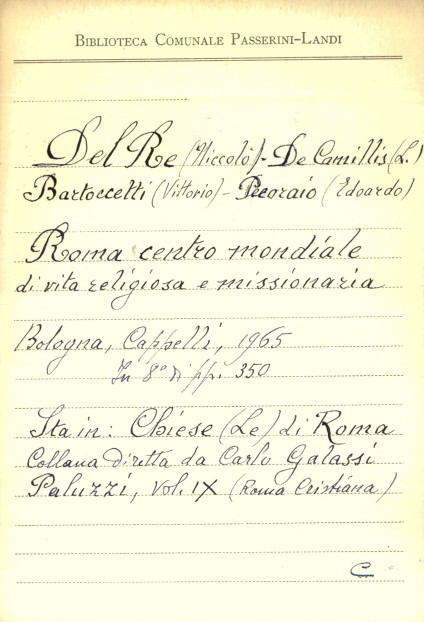 BIBLIOTECA COMUNALE PASSERINI-LANDI
Del Re (Niccolò) - De Camillis (L.)
Bartoccetti (Vittorio) - Pecoraio (Edoardo)
Roma centro mondiale
di vita religiosa e missionaria
Bologna, Cappelli, 1965
In 8° di pp. 350
Sta in: Chiese (Le) di Roma
Collana diretta da Carlo Galassi
Paluzzi, vol. IX (Roma Cristiana)
C